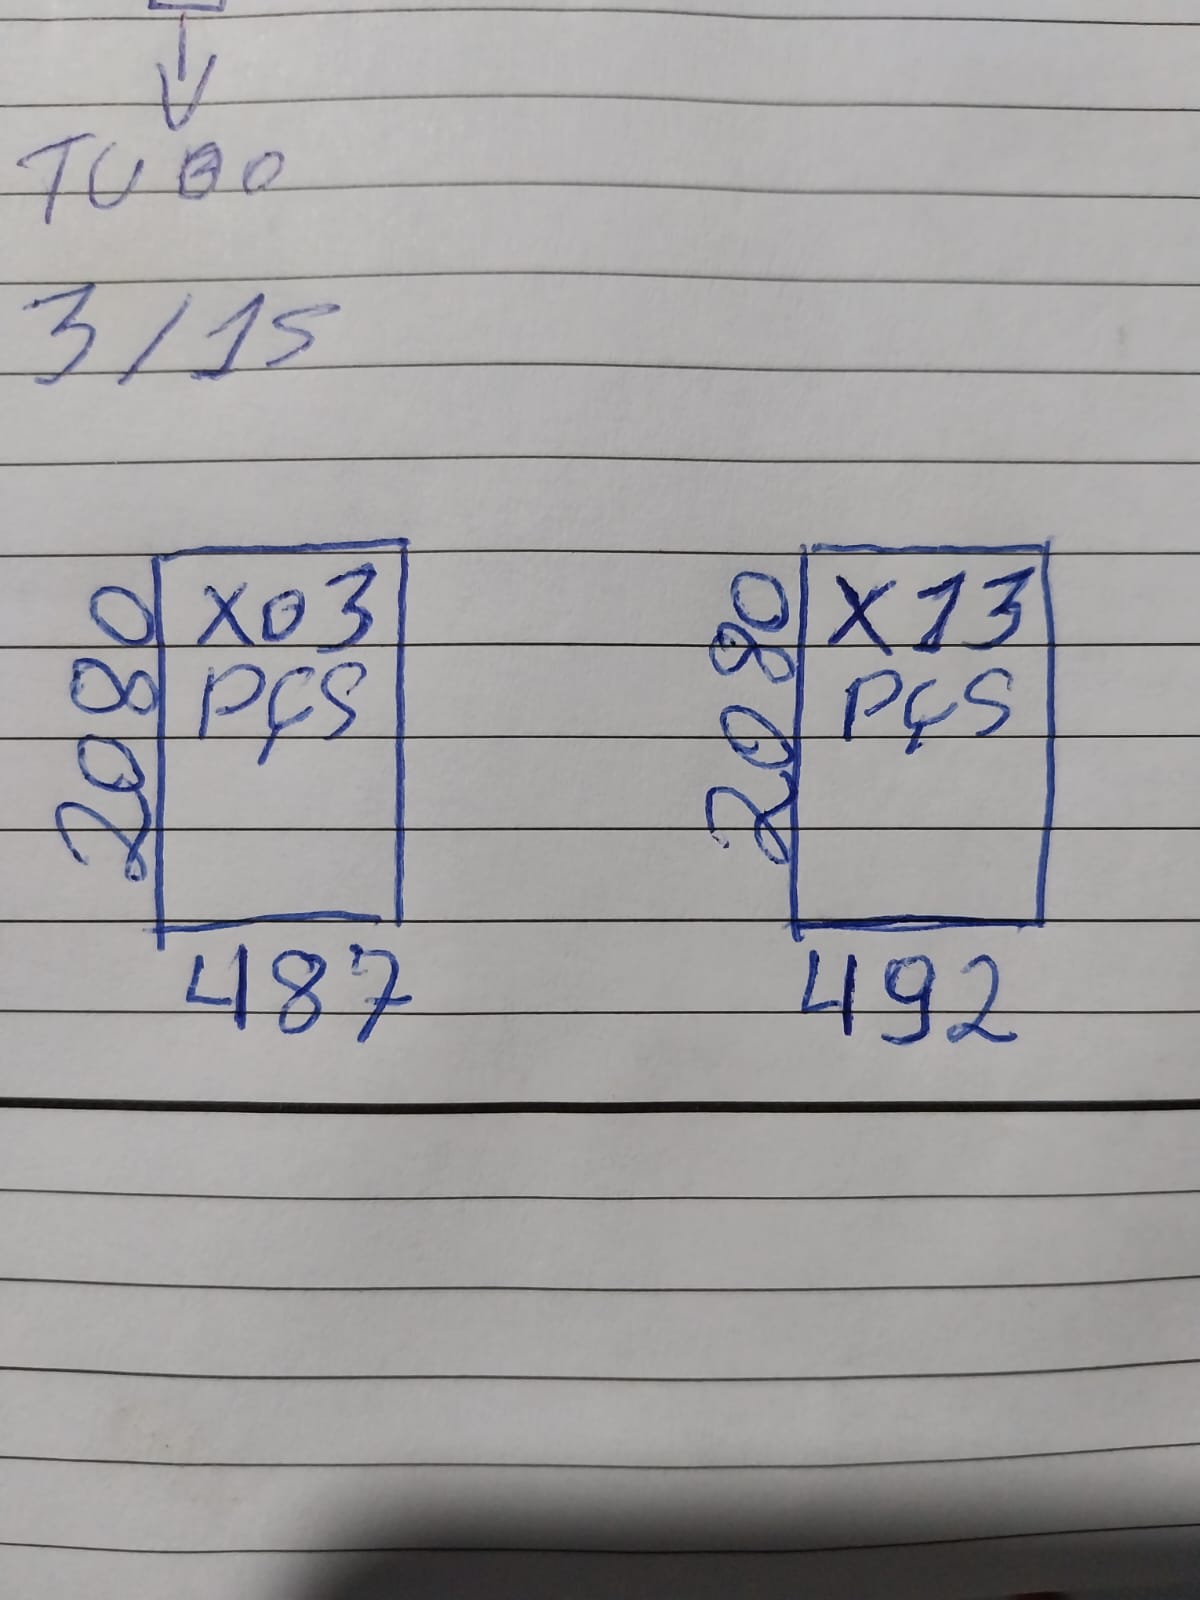 TUBO
3/15
X03
PÇS
2080
487
X13
PÇS
2080
492